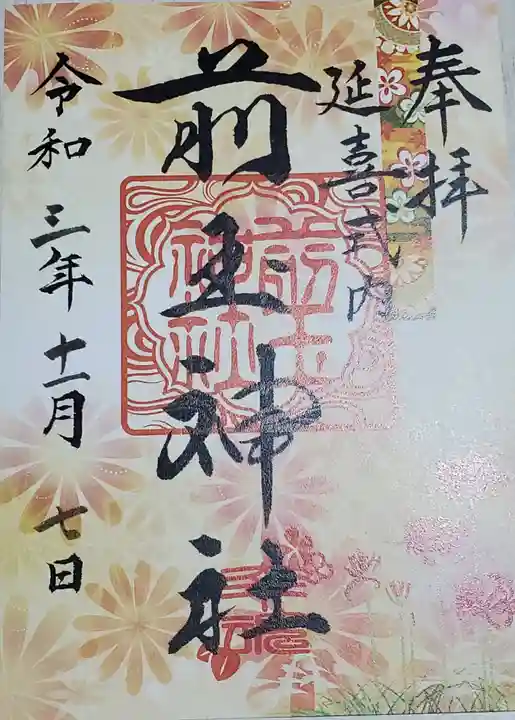 奉拝
延喜式内
前玉神社
令和三年十一月七日
前玉
神社